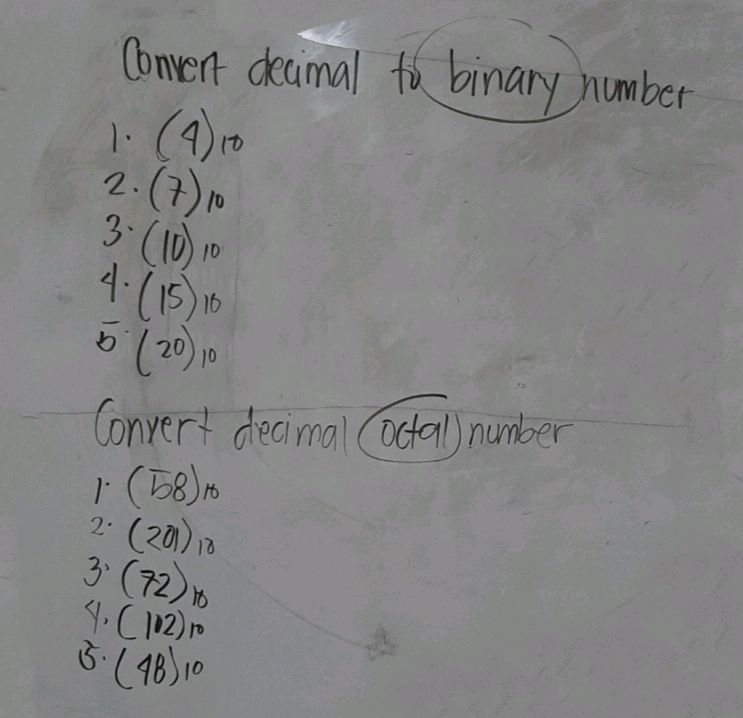 Convert decimal to binary number
1. (4)10
2. (7)10
3. (10)10
4. (15)10
5. (20)10
Convert decimal octal number
1. (58)10
2. (201)10
3. (72)10
4. (102)10
5. (48)10